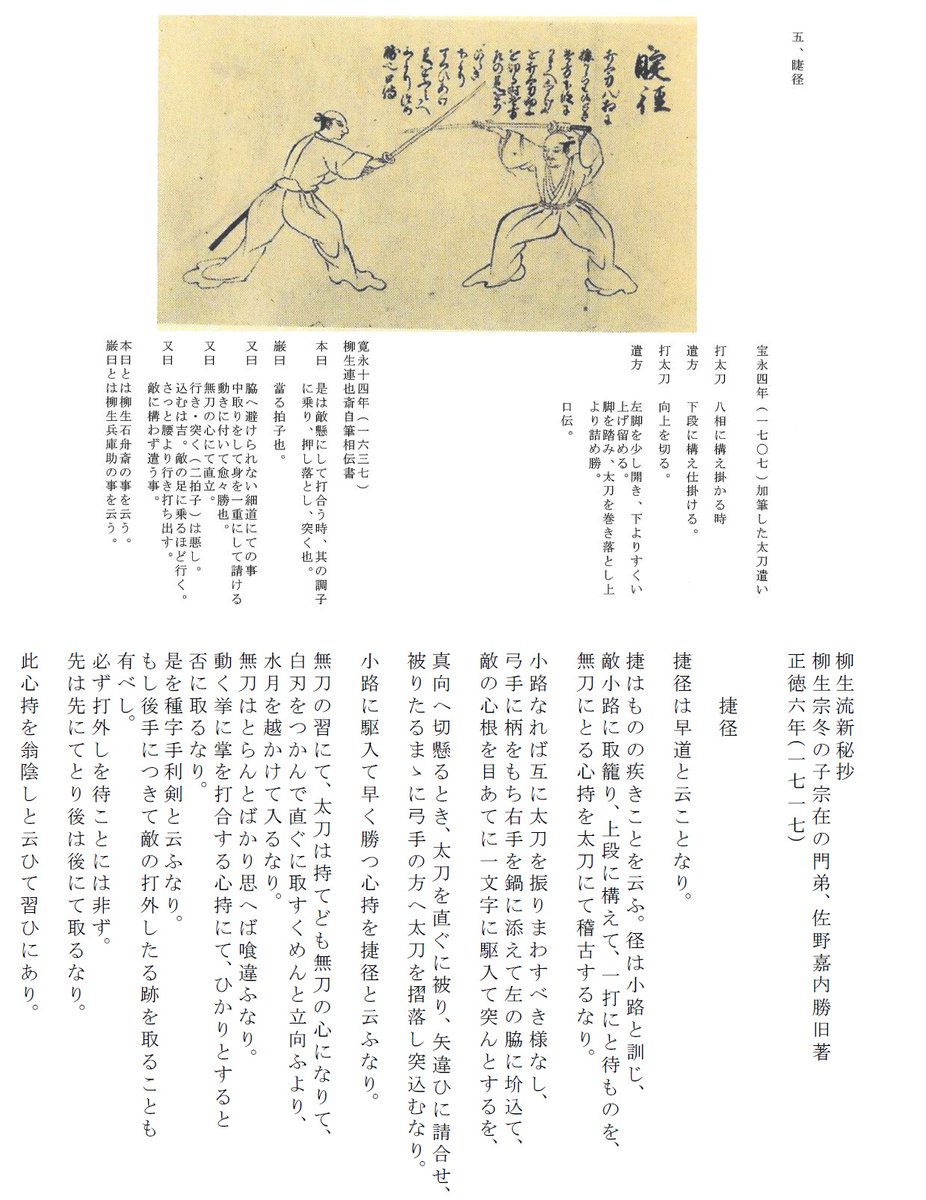 五、睫径
睫径
宝永四年(一七〇七)加筆した太刀遣い
打太刀 八相に構え掛かる時
遣方 下段に構え仕掛ける。
打太刀 向上を切る。
遣方 左脚を少し開き、下よりすくい
上げ留める。
脚を踏み、太刀を巻き落とし上
より詰め勝。
口伝。
寛永十四年(一六三七)
柳生連也斎自筆相伝書
本曰 是は敵懸にして打合う時、其の調子
に乗り、押し落とし、突く也。
厳曰 當る拍子也。
又曰 脇へ避けられない細道にての事
中取りをして身を一重にして請ける
動きに付いて愈々勝也。
又曰 無刀の心にて直立。
行き・突く(二拍子)は悪し。
込むは吉。敵の足に乗るほど行く。
又曰 さっと腰より行き打ち出す。
敵に構わず遣う事。
本曰とは柳生石舟斎の事を云う。
厳曰とは柳生兵庫助の事を云う。
柳生流新秘抄
柳生宗冬の子宗在の門弟、佐野嘉内勝旧著
正徳六年(一七一七)
捷径
捷径は早道と云ことなり。
捷はものの疾きことを云ふ。径は小路と訓じ、
敵小路に取籠り、上段に構えて、一打にと待ものを、
無刀にとる心持を太刀にて稽古するなり。
小路なれば互に太刀を振りまわすべき様なし、
弓手に柄をもち右手を鍋に添えて左の脇に圿込て、
敵の心根を目あてに一文字に駆入て突んとするを、
真向へ切懸るとき、太刀を直ぐに被り、矢違ひに請合せ、
被りたるまゝに弓手の方へ太刀を摺落し突込むなり。
小路に駆入て早く勝つ心持を捷径と云ふなり。
無刀の習にて、太刀は持てども無刀の心になりて、
白刃をつかんで直ぐに取すくめんと立向ふより、
水月を越かけて入るなり。
無刀はとらんとばかり思へば喰違ふなり。
動く挙に掌を打合する心持にて、ひかりとすると
否に取るなり。
是を種字手利剣と云ふなり。
もし後手につきて敵の打外したる跡を取ることも
有べし。
必ず打外しを待ことには非ず。
先は先にてとり後は後にて取るなり。
此心持を翁陰しと云ひて習ひにあり。